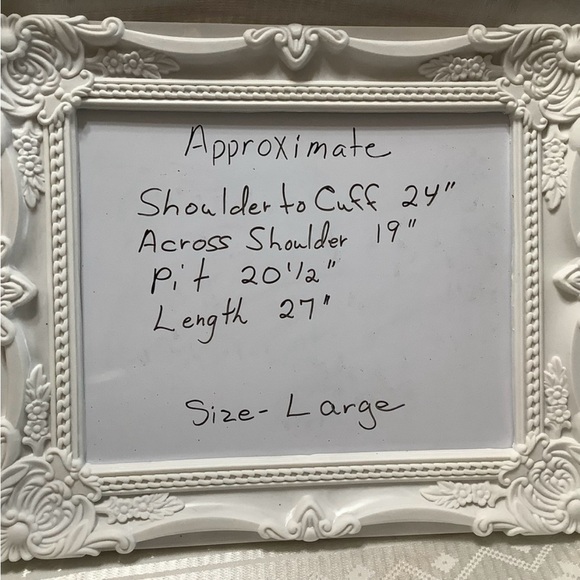 Approximate
Shoulder to Cuff 24"
Across Shoulder 19"
Pit 20 1/2"
Length 27"
Size - Large